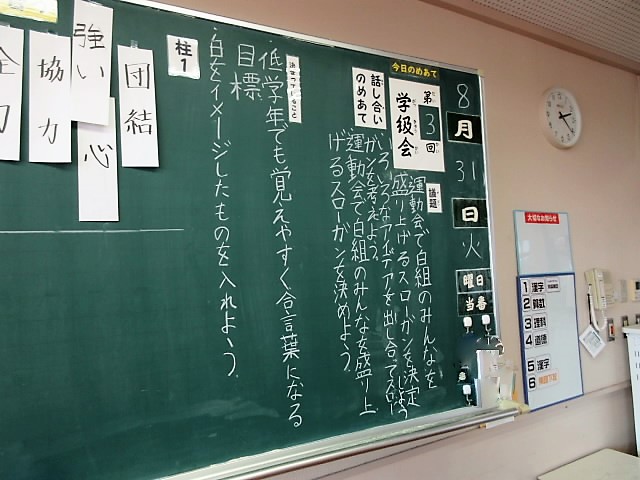 8月31日火曜日
当番
今日のめあて
第3回
学級会
議題
運動会で白組のみんなを
盛り上げるスローガンを決定しよう
話し合いのめあて
いろいろなアイデアを出し合ってスロー
ガンを考えよう。
運動会で白組のみんなを盛り上
げるスローガンを決めよう。
決まっていること
目標
低学年でも覚えやすく合言葉になる
柱1
・白をイメージしたものを入れよう。
団結
強い心
協力
全力
大切なお知らせ
1 漢字
2 算数
3 理科
4 道徳
5 漢字
6